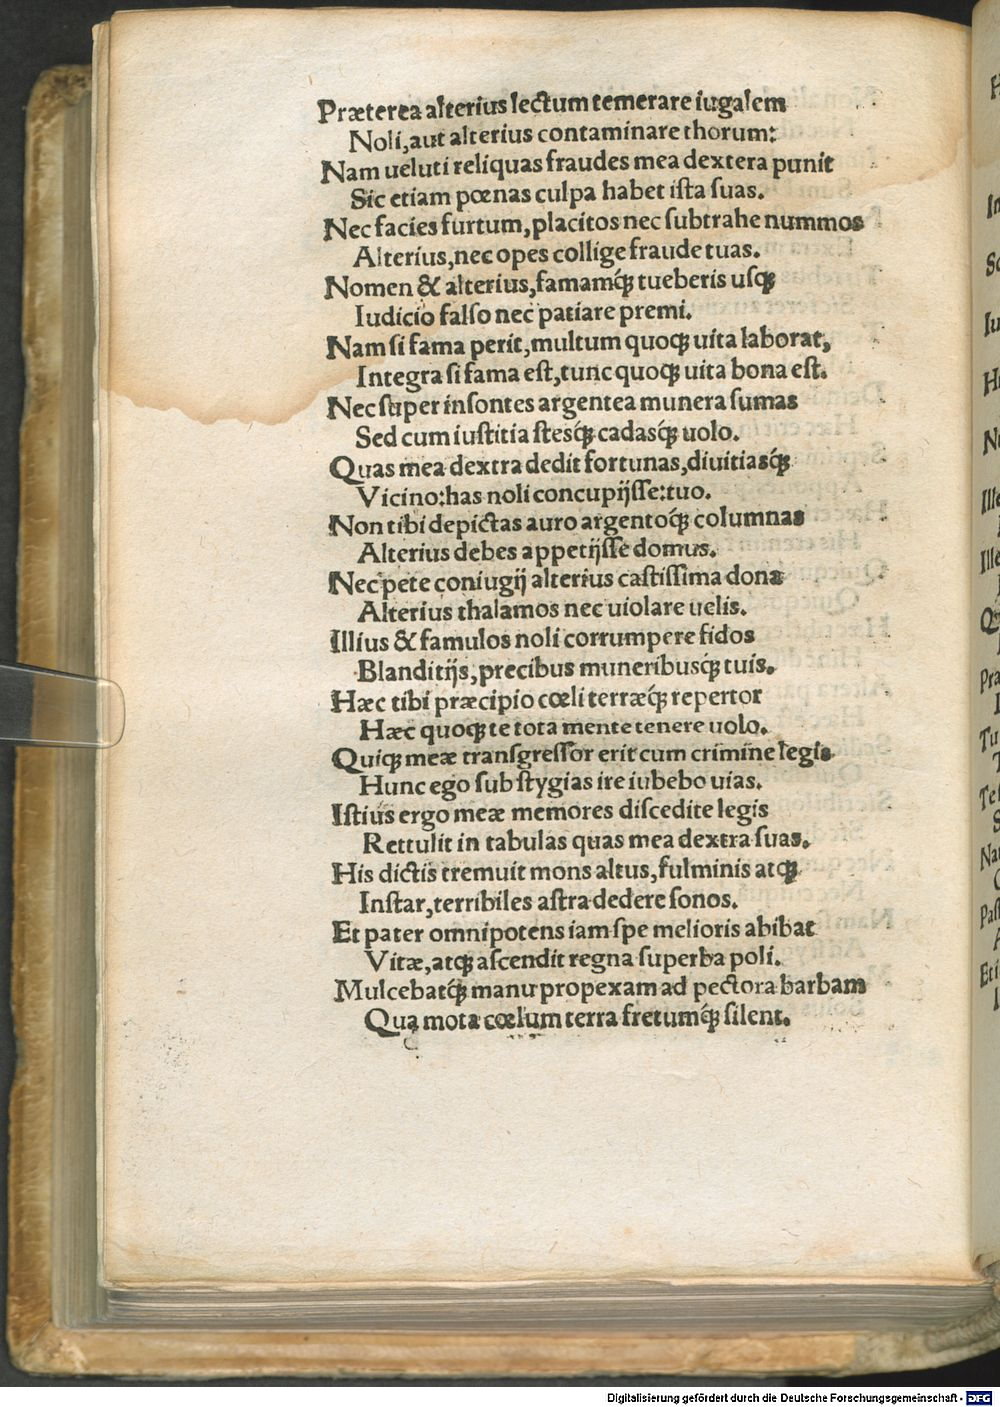 Præterea alterius lectum temerare iugalem
Noli, aut alterius contaminare thorum:
Nam ueluti reliquas fraudes mea dextera punit
Sic etiam pœnas culpa habet iſta ſuas.
Nec facies furtum, placitos nec ſubtrahe nummos
Alterius, nec opes collige fraude tuas.
Nomen & alterius, famamq́ꝫ tueberis uſqꝫ
Iudicio falſo nec patiare premi.
Nam ſi fama perit, multum quoqꝫ uita laborat,
Integra ſi fama eſt, tunc quoqꝫ uita bona eſt.
Nec ſuper inſontes argentea munera ſumas
Sed cum iuſtitia ſtesq́ꝫ cadasq́ꝫ uolo.
Quas mea dextra dedit fortunas, diuitiasq́ꝫ
Vicino: has noli concupijſſe: tuo.
Non tibi depictas auro argentoq́ꝫ columnas
Alterius debes appetijſſe domus.
Nec pete coniugij alterius caſtiſſima dona
Alterius thalamos nec uiolare uelis.
Illius & famulos noli corrumpere fidos
Blanditijs, precibus muneribusq́ꝫ tuis.
Hæc tibi præcipio cœli terræq́ꝫ repertor
Hæc quoqꝫ te tota mente tenere uolo.
Quiqꝫ meæ tranſgreſſor erit cum crimine legis
Hunc ego ſub ſtygias ire iubebo uias.
Iſtius ergo meæ memores diſcedite legis
Rettulit in tabulas quas mea dextra ſuas.
His dictis tremuit mons altus, fulminis atqꝫ
Inſtar, terribiles aſtra dedere ſonos.
Et pater omnipotens iam ſpe melioris abibat
Vitæ, atqꝫ aſcendit regna ſuperba poli.
Mulcebatq́ꝫ manu propexam ad pectora barbam
Qua mota cœlum terra fretumq́ꝫ ſilent.
Digitalisierung gefördert durch die Deutsche Forschungsgemeinschaft - DFG